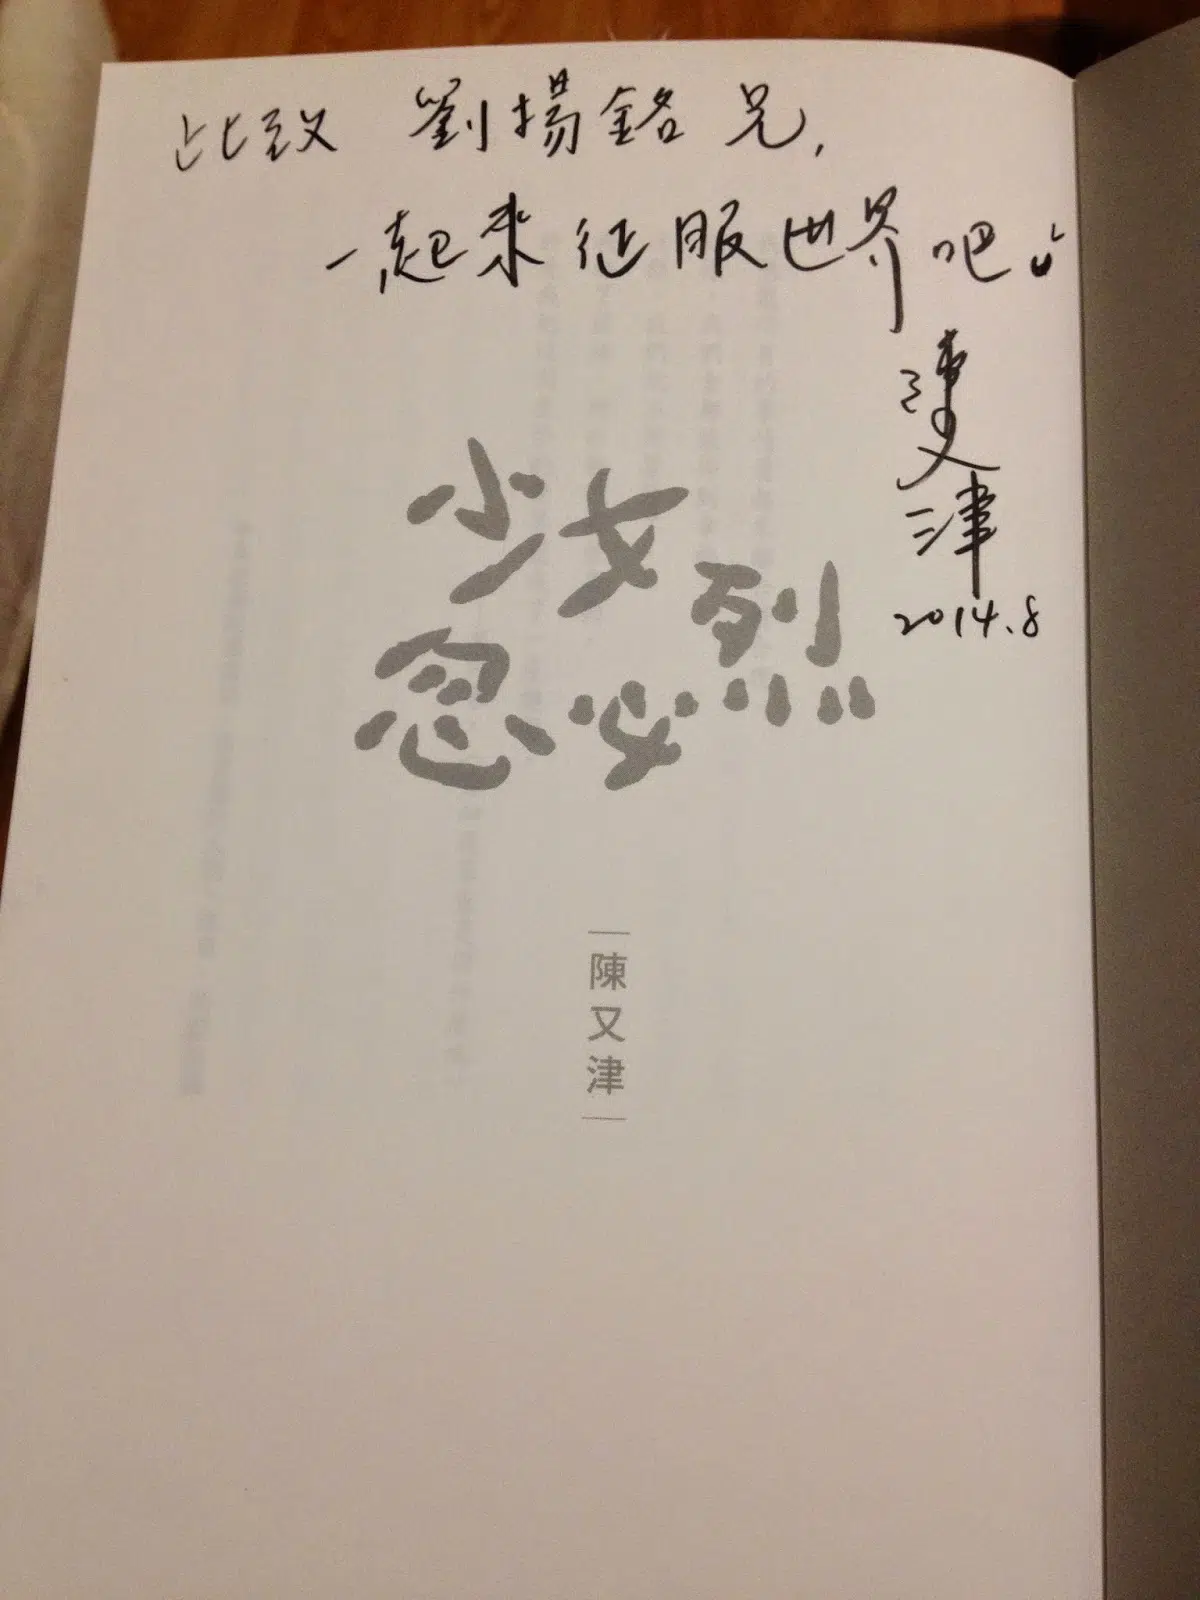 此致 劉揚銘兄,
一起來征服世界吧!
陳又津
2014.8
少女
忽必烈
陳又津